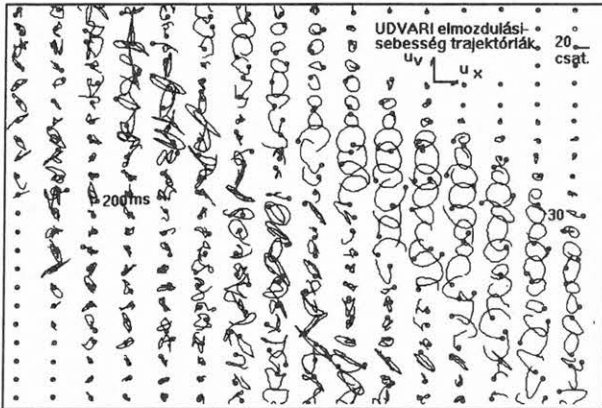 UDVARI elmozdulási-
sebesség trajektóriák
20
csat.
u_v
u_x
200ms
30